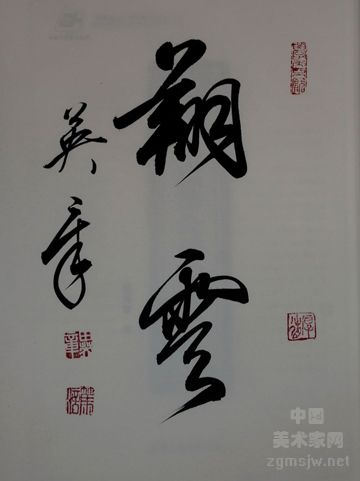 翔雲
英章
中国
美术家网
zgmsjw.net